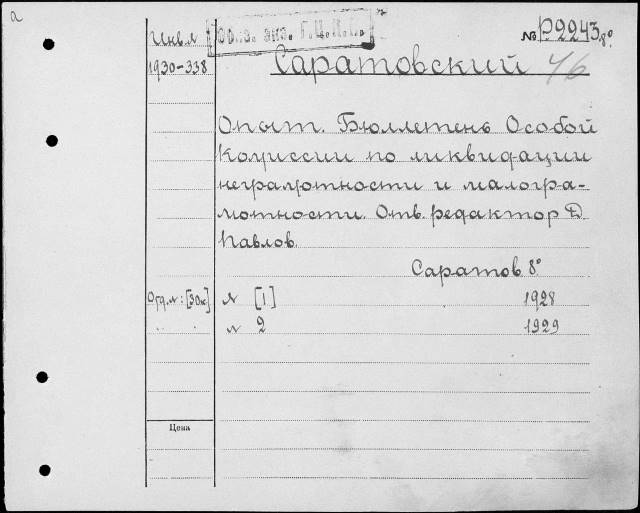 а
Инв. №
1930-338
Обяз. экз. Г.Ц.К.П.
№ Р2243 8°
Саратовский
76
Опыт. Бюллетень Особой
комиссии по ликвидации
неграмотности и малогра-
мотности. Отв. редактор Д
Павлов.
Саратов 8°
Отд. №: [30к] № [1] 1928
" " № 2 1929
Цена